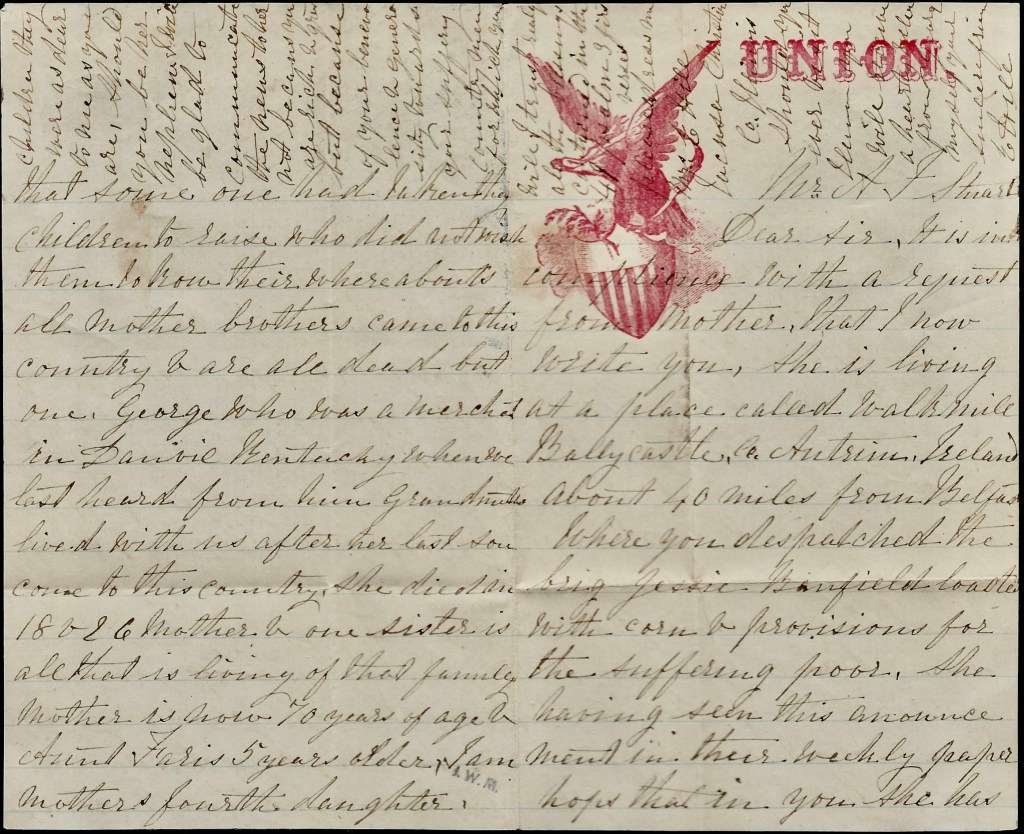 UNION.
Mr A T Stuart
Dear Sir, It is in
compliance with a request
from Mother, that I now
write you, she is living
at a place called Walkmile
Ballycastle, Co. Antrim, Ireland
about 40 miles from Belfast
Where you despatched the
brig Jessie Banfield loaded
with corn & provisions for
the suffering poor. She
having seen this anounce
ment in their weekly paper
hops that in you she has
that some one had taken the
children to raise who did not wish
them to know their whereabouts
all Mother brothers came to this
country & are all dead but
one. George who was a merchant
in Danvil Kentucky when we
last heard from him Grandmother
lived with us after her last son
come to this country, she died in
18 & 26 Mother & one sister is
all that is living of that family
Mother is now 70 years of age &
Aunt Faris 5 years older, I am
mothers fourth daughter.
J. W. M.
children they
were as dear
to me as you
are, should
you be her
Nephew I will
be glad to
communicate
the news to her
not because you
are rich & great
but because
of your benevo
lence & genero
sity towards
our suffering
countrymen
for which you
will I trust
Mrs E Hill
Christian
Co. Illinois
Should you
ever visit
will
a hearty
from
myself your
sincere friend
E Hill